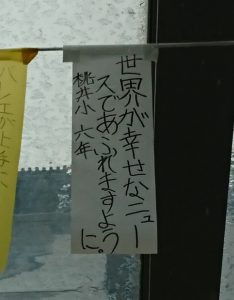 世界が幸せなニュー
スであふれますように。
桃井小 六年
バレエが上手に